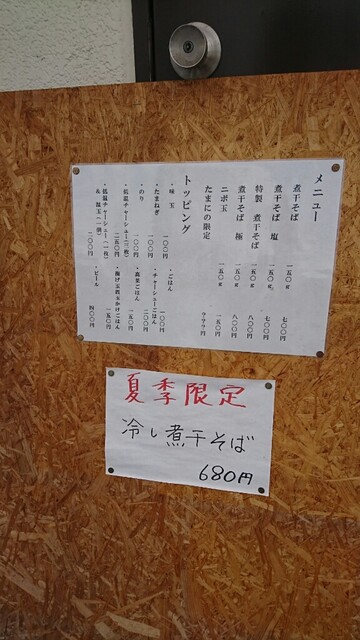 メニュー
煮干そば 一五〇g 七〇〇円
煮干そば 塩 一五〇g 七〇〇円
特製 煮干そば 一五〇g 八〇〇円
煮干そば 極 一五〇g 八〇〇円
ニボ玉 一五〇g 一五〇円
たまにの限定 ？？？円
トッピング
・味玉 一〇〇円
・たまねぎ 一〇〇円
・のり 一〇〇円
・低温チャーシュー(二枚) 二五〇円
・低温チャーシュー(一枚)
・ごはん 一〇〇円
・チャーシューごはん 二〇〇円
・一五〇円
・一五〇円
・ビール 四〇〇円
夏季限定
冷し煮干そば
680円